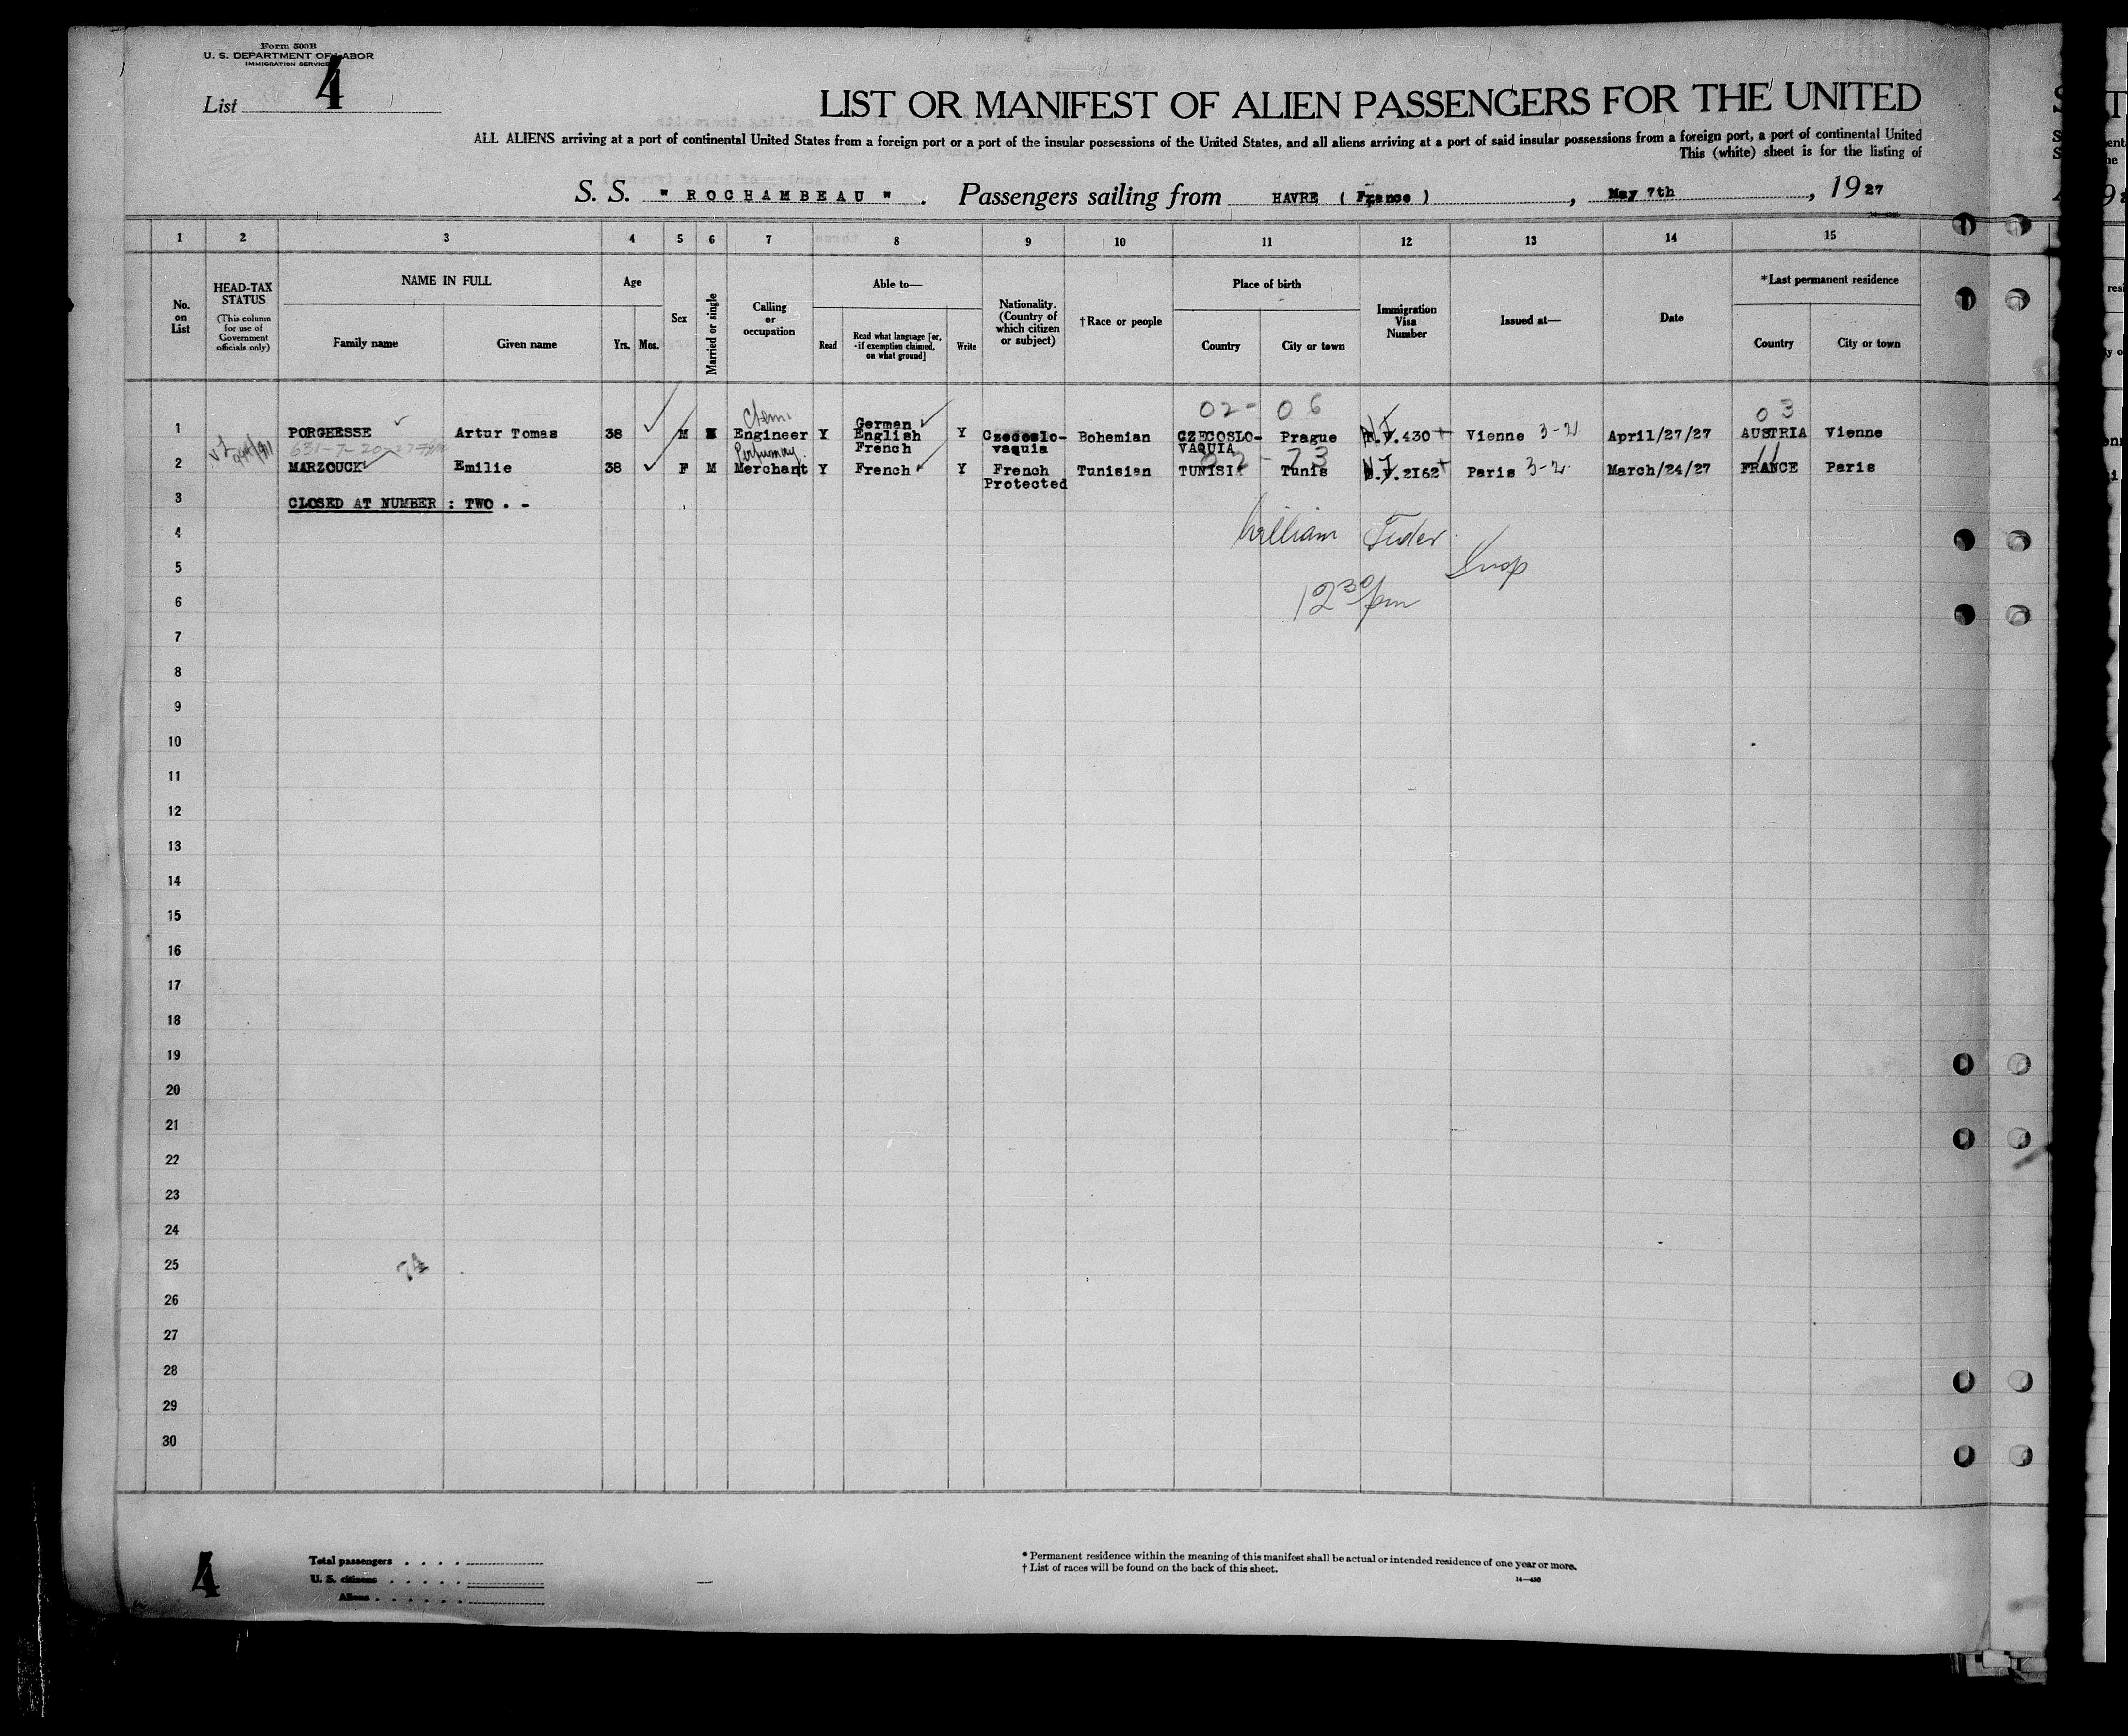 Form 500B
U. S. DEPARTMENT OF LABOR
IMMIGRATION SERVICE
List 4
LIST OR MANIFEST OF ALIEN PASSENGERS FOR THE UNITED
ALL ALIENS arriving at a port of continental United States from a foreign port or a port of the insular possessions of the United States, and all aliens arriving at a port of said insular possessions from a foreign port, a port of continental United
This (white) sheet is for the listing of
S. S. " ROCHAMBEAU " . Passengers sailing from HAVRE ( France ) , May 7th , 1927
1 2 3 4 5 6 7 8 9 10 11 12 13 14 15
No. on List
HEAD-TAX STATUS
(This column for use of Government officials only)
NAME IN FULL
Family name Given name
Age
Yrs. Mos.
Sex
Married or single
Calling or occupation
Able to—
Read
Read what language [or, if exemption claimed, on what ground]
Write
Nationality. (Country of which citizen or subject)
†Race or people
Place of birth
Country City or town
Immigration Visa Number
Issued at—
Date
*Last permanent residence
Country City or town
02- 06 03
Chem.
1 PORGEESSE Artur Tomas 38 M Engineer Y German English French Y Czecoslo-vaquia Bohemian CZECOSLO-VAQUIA Prague 430 Vienne 3-2 April/27/27 AUSTRIA Vienne
Perfumery 02-73 11
2 MARZOUCK Emilie 38 F M Merchant Y French Y French Protected Tunisian TUNISIA Tunis 2162 Paris 3-2 March/24/27 FRANCE Paris
3 CLOSED AT NUMBER : TWO . -
4 William
5 Insp
6 12 30 pm
7
8
9
10
11
12
13
14
15
16
17
18
19
20
21
22
23
24
25 74
26
27
28
29
30
4
Total passengers . . . .
U. S. citizens . . . . .
Aliens . . . . . .
* Permanent residence within the meaning of this manifest shall be actual or intended residence of one year or more.
† List of races will be found on the back of this sheet.
14—430